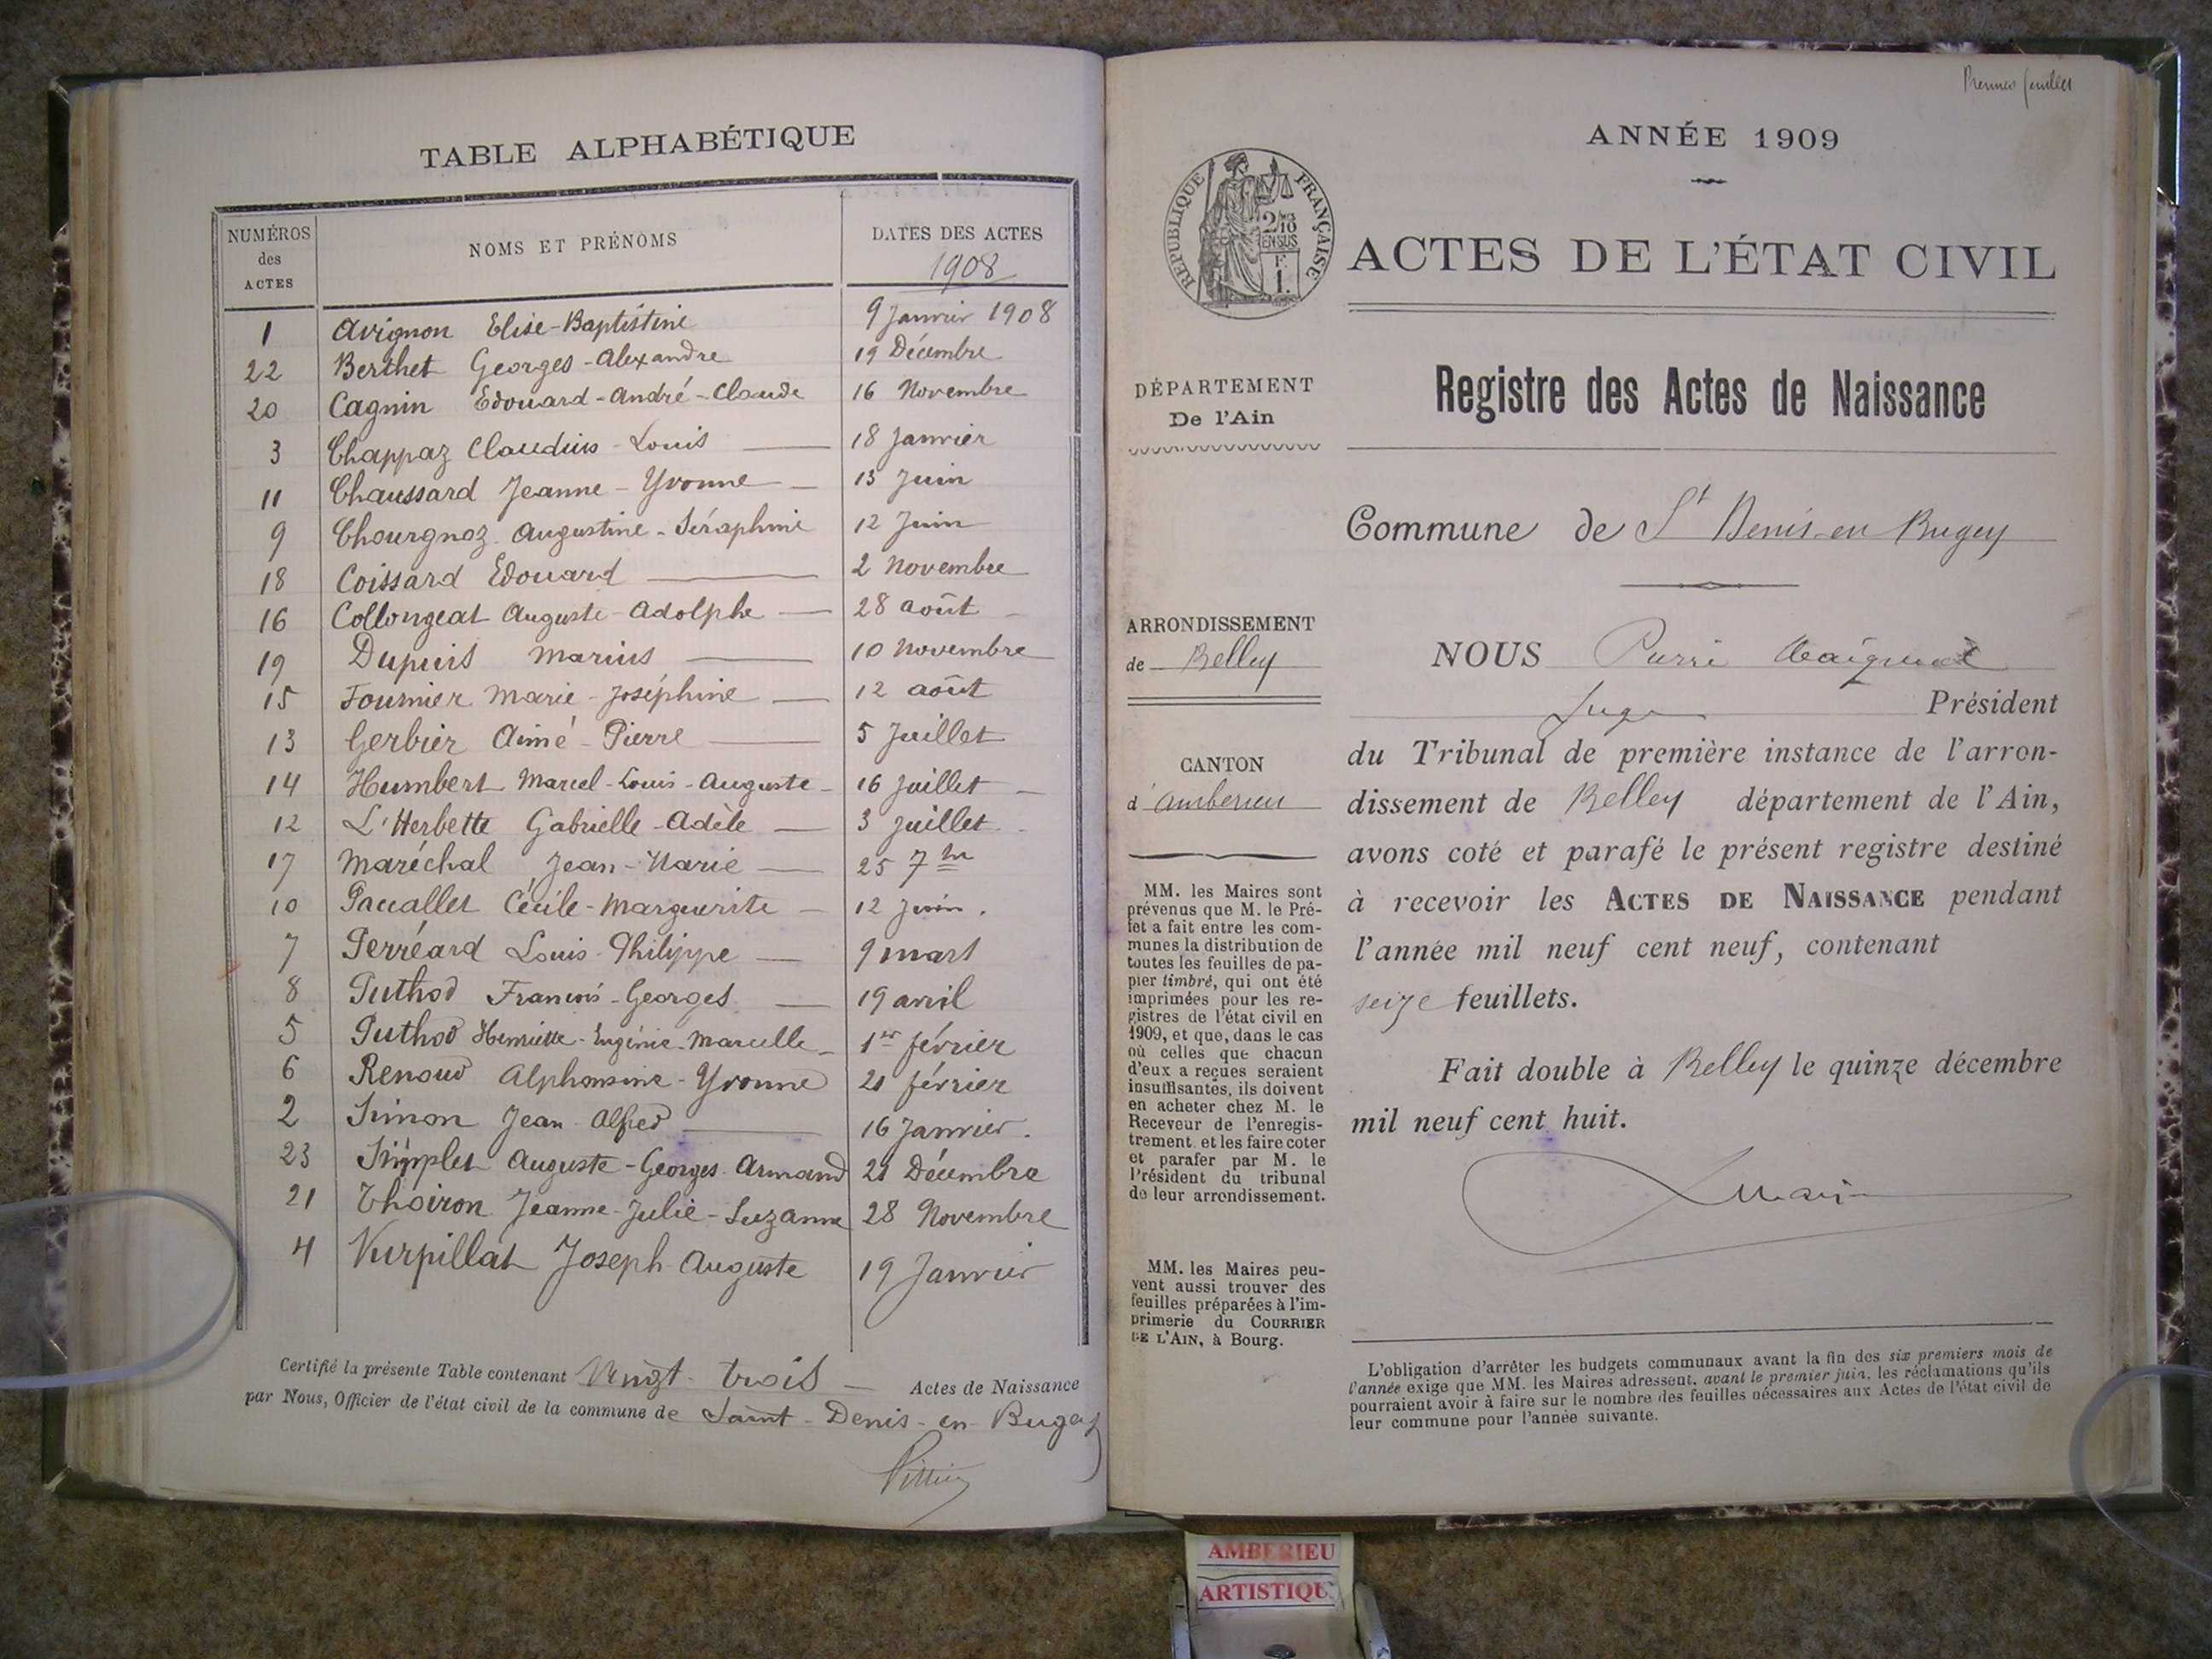 TABLE ALPHABÉTIQUE
NUMÉROS des ACTES
NOMS ET PRÉNOMS
DATES DES ACTES
1908
1 Avignon Elise-Baptistine 9 Janvier 1908
22 Berthet Georges-Alexandre 19 Décembre
20 Cagnin Edouard-André-Claude 16 Novembre
3 Chappaz Claudius-Louis 18 Janvier
11 Chaussard Jeanne-Yvonne 13 Juin
9 Chourgnoz Augustine-Séraphine 12 Juin
18 Coissard Edouard 2 Novembre
16 Collongeat Auguste-Adolphe 28 août
19 Dupuis Marius 10 Novembre
15 Fournier Marie-Joséphine 12 août
13 Gerbier Aimé-Pierre 5 Juillet
14 Humbert Marcel-Louis-Auguste 16 Juillet
12 L'Herbette Gabrielle-Adèle 3 Juillet
17 Maréchal Jean-Marie 25 7bre
10 Pacallet Cécile-Marguerite 12 Juin.
7 Perréard Louis-Philippe 9 mars
8 Puthod François-Georges 19 avril
5 Puthod Henriette-Eugénie-Marcelle 1er février
6 Renoud Alphonsine-Yvonne 21 février
2 Simon Jean Alfred 16 Janvier.
23 Simplet Auguste-Georges Armand 21 Décembre
21 Thoiron Jeanne-Julie-Suzanne 28 Novembre
4 Vurpillat Joseph Auguste 19 Janvier
Certifié la présente Table contenant Vingt-trois Actes de Naissance
par Nous, Officier de l'état civil de la commune de Saint-Denis-en-Bugey
Premier feuillet
ANNÉE 1909
RÉPUBLIQUE FRANÇAISE
2/10 EN SUS
F. 1.
ACTES DE L'ÉTAT CIVIL
DÉPARTEMENT
De l'Ain
Registre des Actes de Naissance
Commune de St Denis-en Bugey
ARRONDISSEMENT
de Belley
CANTON
d'Amberieu
MM. les Maires sont
prévenus que M. le Pré-
fet a fait entre les com-
munes la distribution de
toutes les feuilles de pa-
pier timbré, qui ont été
imprimées pour les re-
gistres de l'état civil en
1909, et que, dans le cas
où celles que chacun
d'eux a reçues seraient
insuffisantes, ils doivent
en acheter chez M. le
Receveur de l'enregis-
trement et les faire coter
et parafer par M. le
Président du tribunal
de leur arrondissement.
MM. les Maires peu-
vent aussi trouver des
feuilles préparées à l'im-
primerie du COURRIER
DE L'AIN, à Bourg.
NOUS Pierre
Juge Président
du Tribunal de première instance de l'arron-
dissement de Belley département de l'Ain,
avons coté et parafé le présent registre destiné
à recevoir les ACTES DE NAISSANCE pendant
l'année mil neuf cent neuf, contenant
seize feuillets.
Fait double à Belley le quinze décembre
mil neuf cent huit.
L'obligation d'arrêter les budgets communaux avant la fin des six premiers mois de
l'année exige que MM. les Maires adressent, avant le premier juin, les réclamations qu'ils
pourraient avoir à faire sur le nombre des feuilles nécessaires aux Actes de l'état civil de
leur commune pour l'année suivante.
AMBERIEU
ARTISTIQU